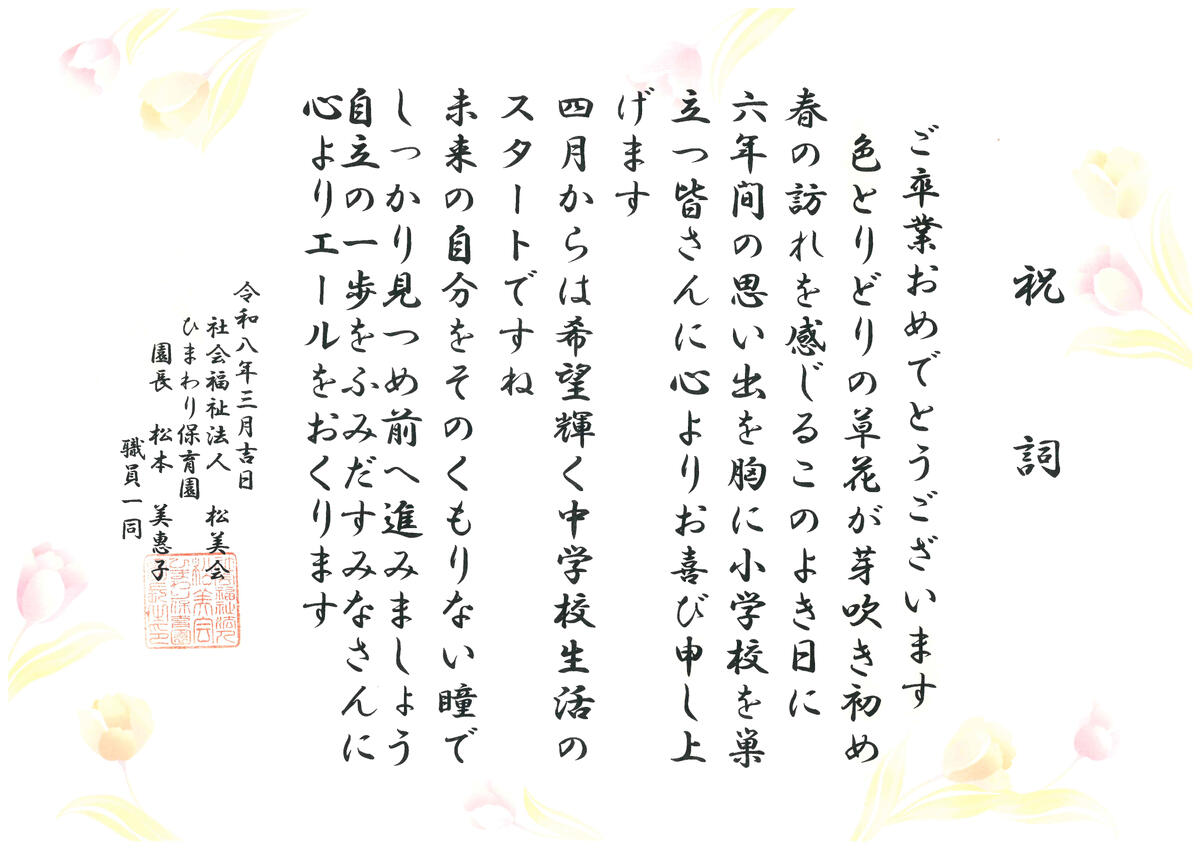 祝詞
ご卒業おめでとうございます
色とりどりの草花が芽吹き初め
春の訪れを感じるこのよき日に
六年間の思い出を胸に小学校を巣
立つ皆さんに心よりお喜び申し上
げます
四月からは希望輝く中学校生活の
スタートですね
未来の自分をそのくもりない瞳で
しっかり見つめ前へ進みましょう
自立の一歩をふみだすみなさんに
心よりエールをおくります
令和八年三月吉日
社会福祉法人 松美会
ひまわり保育園
園長 松本 美惠子
職員一同